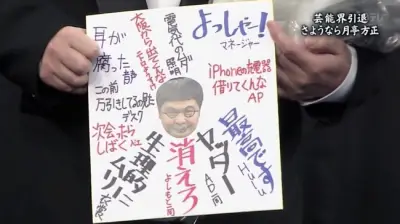 芸能界引退
さようなら月亭方正
よっしゃー!
マネージャー
大阪から出てくんな
照明
耳が
腐った
音部
この前
万引きしてるの見た
デスク
次会ったら
しばく
生理的に
ムリ!
消えろ
よしもと
ヤッター
AD一同
iPhoneの充電器
借りてくんな
AP
最高です
Hulu